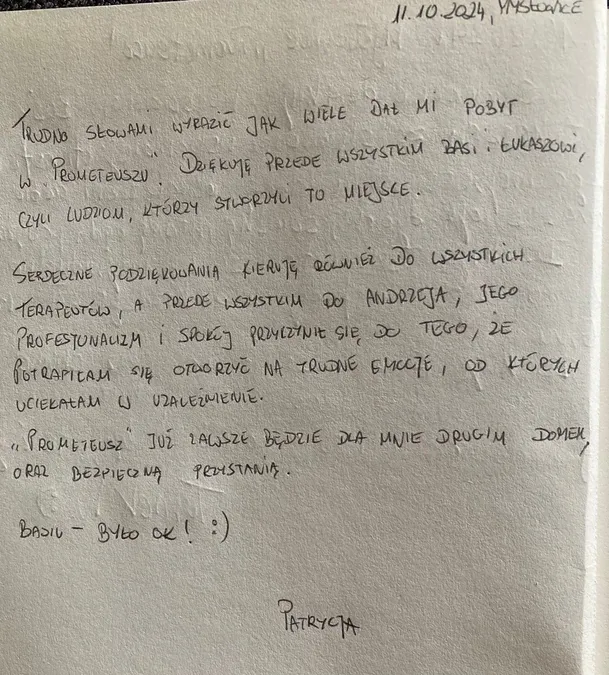 11.10.2024, MYSŁOWICE
TRUDNO SŁOWAMI WYRAZIĆ JAK WIELE DAŁ MI POBYT
W „PROMETEUSZU". DZIĘKUJĘ PRZEDE WSZYSTKIM BASI i ŁUKASZOWI,
CZYLI LUDZIOM, KTÓRZY STWORZYLI TO MIEJSCE.
SERDECZNE PODZIĘKOWANIA KIERUJĘ RÓWNIEŻ DO WSZYSTKICH
TERAPEUTÓW, A PRZEDE WSZYSTKIM DO ANDRZEJA, JEGO
PROFESJONALIZM i SPOKÓJ PRZYCZYNIŁ SIĘ DO TEGO, ŻE
POTRAFIŁAM SIĘ OTWORZYĆ NA TRUDNE EMOCJE, OD KTÓRYCH
UCIEKAŁAM W UZALEŻNIENIE.
„PROMETEUSZ" JUŻ ZAWSZE BĘDZIE DLA MNIE DRUGIM DOMEM,
ORAZ BEZPIECZNĄ PRZYSTANIĄ.
BASIU – BYŁO OK! :)
PATRYCJA